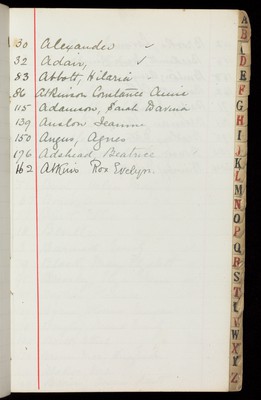 30 Alexander ✓
32 Adair, ✓
83 Abbott, Hilaria
86 Atkinson Constance Annie
115 Adamson, Sarah Davina
139 Jeannie
150 Angus, Agnes
176 Adshead, Beatrice
162 Atkins Rose Evelyn.
A
B
D
E
F
G
H
I
K
L
M
N
O
P
Q
R
S
T
W
X Y
Z